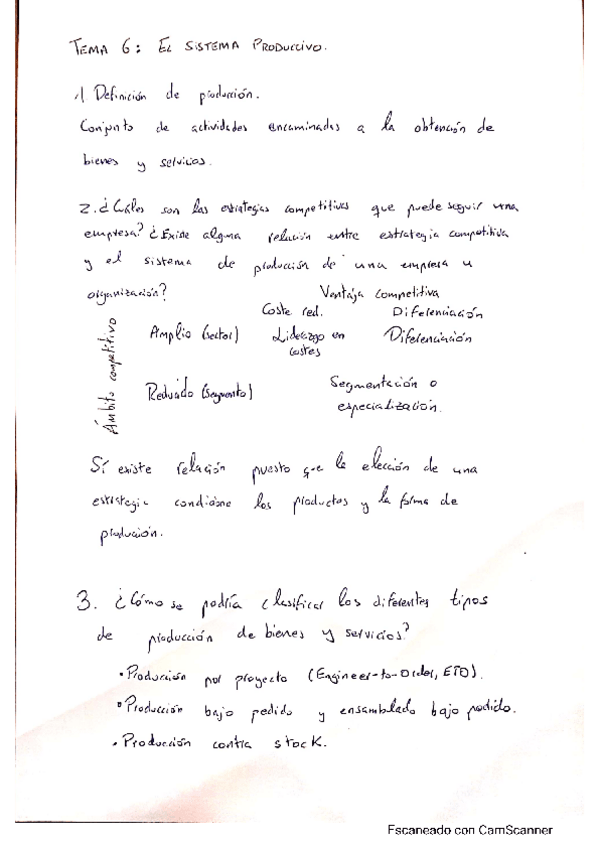 TEMA 6: EL SISTEMA PRODUCTIVO.
1. Definición de producción.
Conjunto de actividades encaminadas a la obtención de
bienes y servicios.
2. ¿Cuáles son las estrategias competitivas que puede seguir una
empresa? ¿Existe alguna relación entre estrategia competitiva
y el sistema de producción de una empresa u
organización?
Ventaja competitiva
Coste red. Diferenciación
Ámbito competitivo
Amplio (sector) Liderazgo en costes Diferenciación
Reducido (segmento) Segmentación o
especialización.
Sí existe relación puesto que la elección de una
estrategia condiciona los productos y la forma de
producción.
3. ¿Cómo se podría clasificar los diferentes tipos
de producción de bienes y servicios?
• Producción por proyecto (Engineer-to-Order, ETO).
• Producción bajo pedido y ensamblado bajo pedido.
• Producción contra stock.
Escaneado con CamScanner